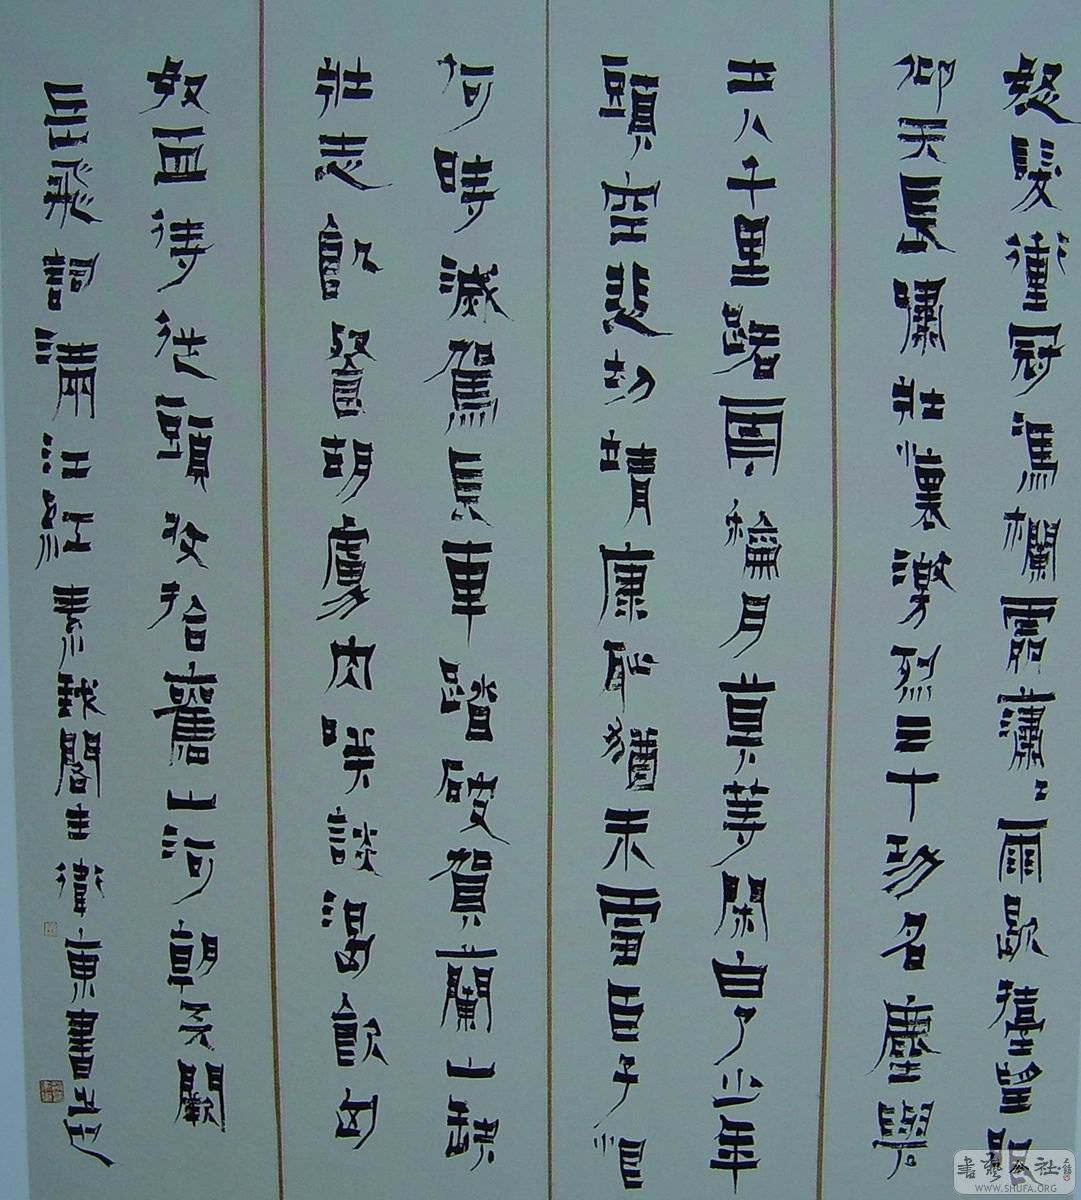 怒髮衝冠馮欄處瀟〻雨歇擡望眼
仰天長嘯壯懷激烈三十功名塵與
土八千里路雲龢月莫等閑白了少年
頭空悲切靖康恥猶未雪臣子恨
何時滅駕長車踏破賀蘭山缺
壯志飢餐胡虜肉咲談渴飲匈
奴血待從頭收拾舊山河朝天闕
岳飛詞滿江紅素閣主衛東書
書藝公社
WWW.SHUFA.ORG